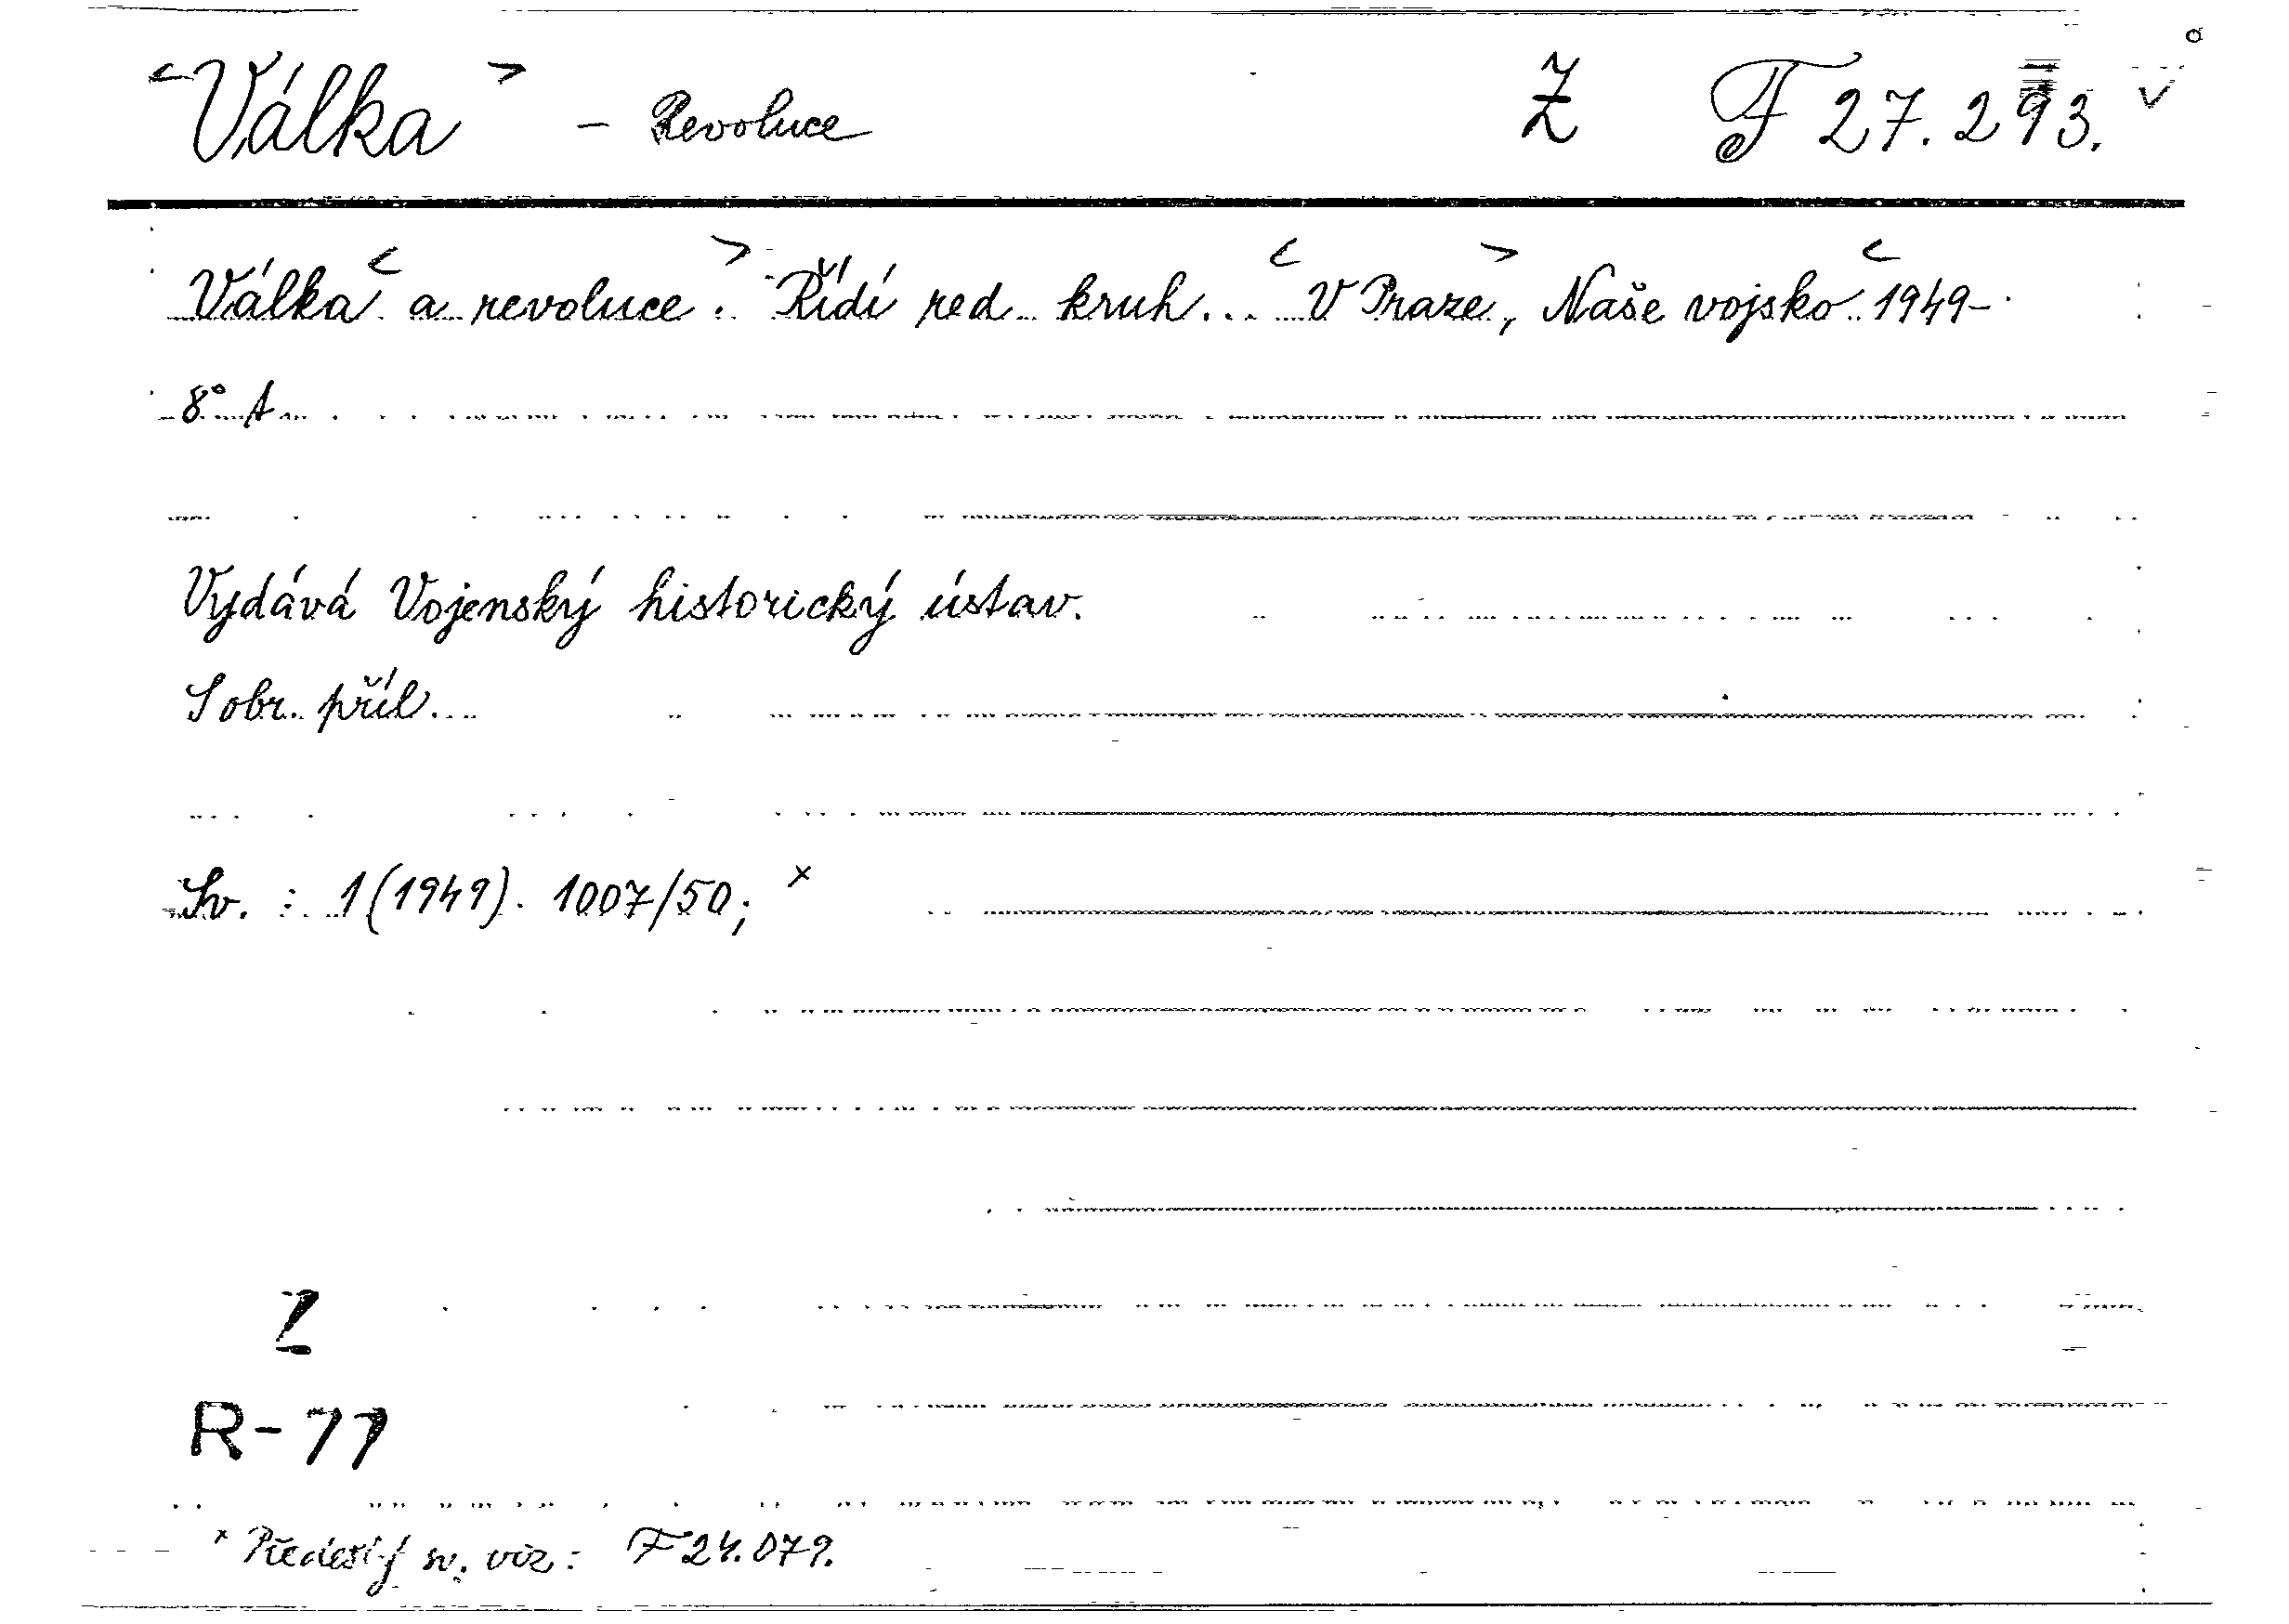 <Válka> – Revoluce Ž F 27.293. v
Válka < a revoluce. > Řídí red. kruh... < V Praze, > Naše vojsko < 1949-
8° A
Vydává Vojenský historický ústav.
S obr. příl.
Sv. : 1(1949). 1007/50; x
Z
R-77
x Předešlý sv. viz: F 24.079.